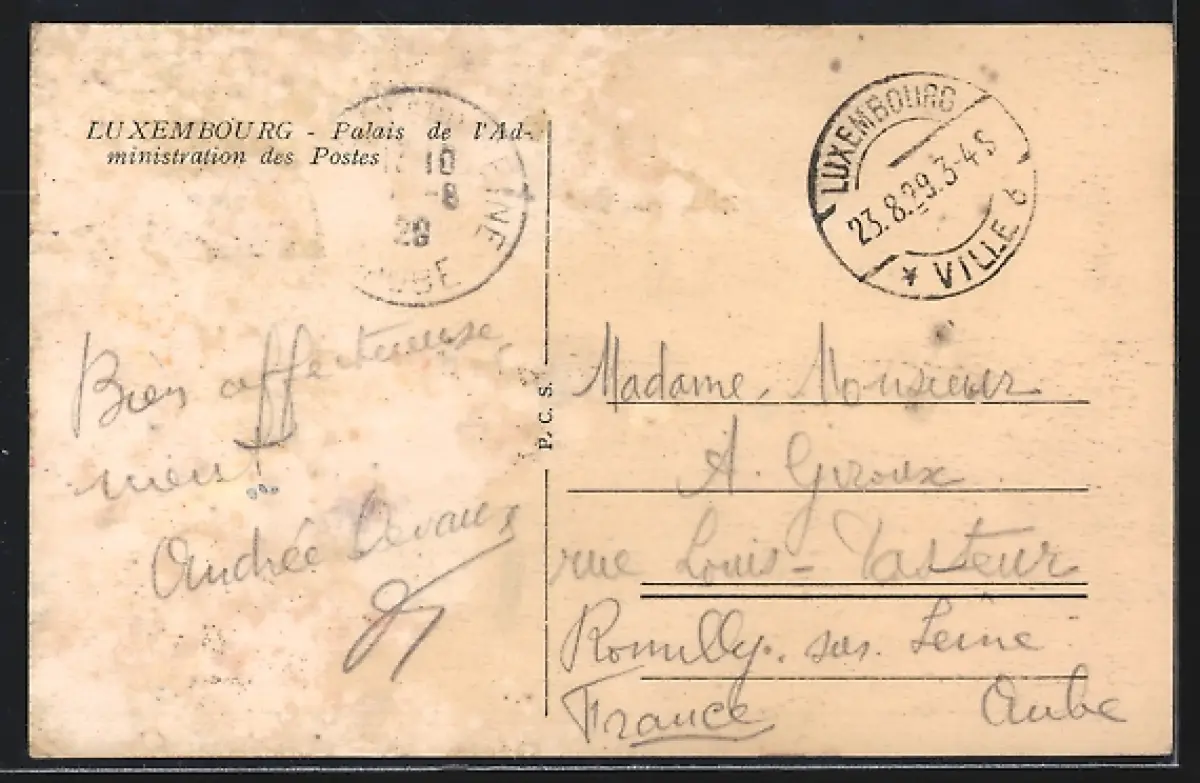 LUXEMBOURG - Palais de l'Ad-
ministration des Postes
10
-8
29
AUBE
LUXEMBOURG
23.8.29.3-4S
* VILLE 6
P. C. S.
Bien affectueuse
ment
Andrée Devaux
Madame, Monsieur
A. Giroux
rue Louis-Pasteur
Romilly. sur. Seine
France
Aube